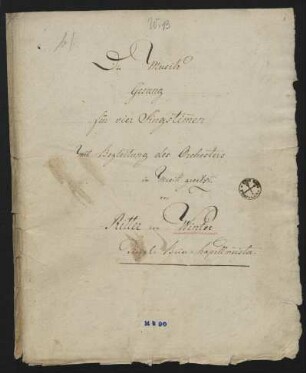 Die Musik
Gesang
für vier Singstimen
mit Begleitung des Orchesters
in Musik gesetzt
von
Ritter von Winter
königl. Kapellmeister